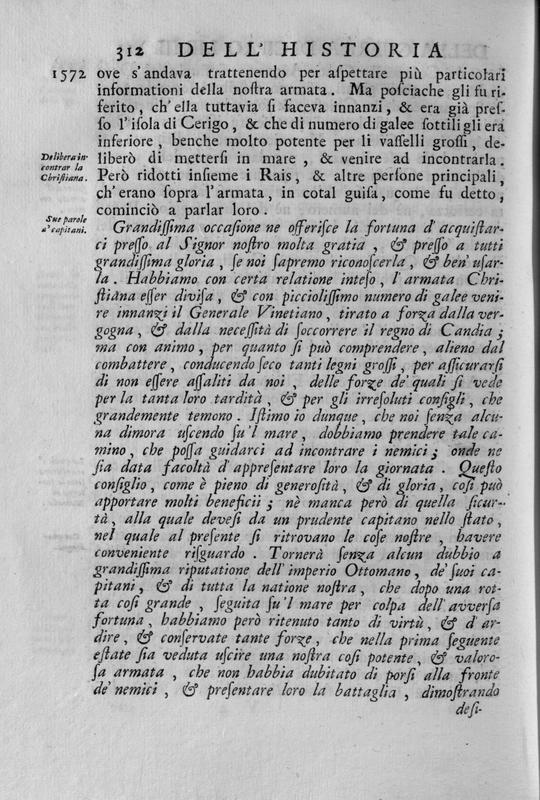 312 DELL' HISTORIA
1572 ove s'andava trattenendo per aſpettare più particolari
informationi della noſtra armata. Ma poſciache gli fu ri-
ferito, ch'ella tuttavia ſi faceva innanzi, & era già preſ-
ſo l'iſola di Cerigo, & che di numero di galee ſottili gli era
inferiore, benche molto potente per li vaſſelli groſſi, de-
Delibera in-
contrar la
Chriſtiana.
liberò di metterſi in mare, & venire ad incontrarla.
Però ridotti inſieme i Rais, & altre perſone principali,
ch'erano ſopra l'armata, in cotal guiſa, come fu detto,
Sue parole
a' capitani.
cominciò a parlar loro.
Grandiſſima occaſione ne offeriſce la fortuna d'acquiſtar-
ci preſſo al Signor noſtro molta gratia, & preſſo a tutti
grandiſſima gloria, ſe noi ſapremo riconoſcerla, & ben' uſar-
la. Habbiamo con certa relatione inteſo, l'armata Chri-
ſtiana eſſer diviſa, & con picciolissimo numero di galee veni-
re innanzi il Generale Vinetiano, tirato a forza dalla ver-
gogna, & dalla neceſſità di ſoccorrere il regno di Candia;
ma con animo, per quanto ſi può comprendere, alieno dal
combattere, conducendo ſeco tanti legni groſſi, per aſſicurarſi
di non eſſere aſſaliti da noi, delle forze de' quali ſi vede
per la tanta loro tardità, & per gli irreſoluti conſigli, che
grandemente temono. Iſtimo io dunque, che noi ſenza alcu-
na dimora uſcendo ſu'l mare, dobbiamo prendere tale ca-
mino, che poſſa guidarci ad incontrare i nemici; onde ne
ſia data facoltà d'appreſentare loro la giornata. Queſto
conſiglio, come è pieno di generoſità, & di gloria, coſi può
apportare molti beneficii; nè manca però di quella ſicur-
tà, alla quale deveſi da un prudente capitano nello ſtato,
nel quale al preſente ſi ritrovano le coſe noſtre, havere
conveniente riſguardo. Tornerà ſenza alcun dubbio a
grandiſſima riputatione dell'imperio Ottomano, de' ſuoi ca-
pitani, & di tutta la natione noſtra, che dopo una rot-
ta coſi grande, ſeguita ſu'l mare per colpa dell'avverſa
fortuna, habbiamo però ritenuto tanto di virtù, & d'ar-
dire, & conſervate tante forze, che nella prima ſeguente
eſtate ſia veduta uſcire una noſtra coſi potente, & valoro-
ſa armata, che non habbia dubitato di porſi alla fronte
de' nemici, & preſentare loro la battaglia, dimoſtrando
deſi-